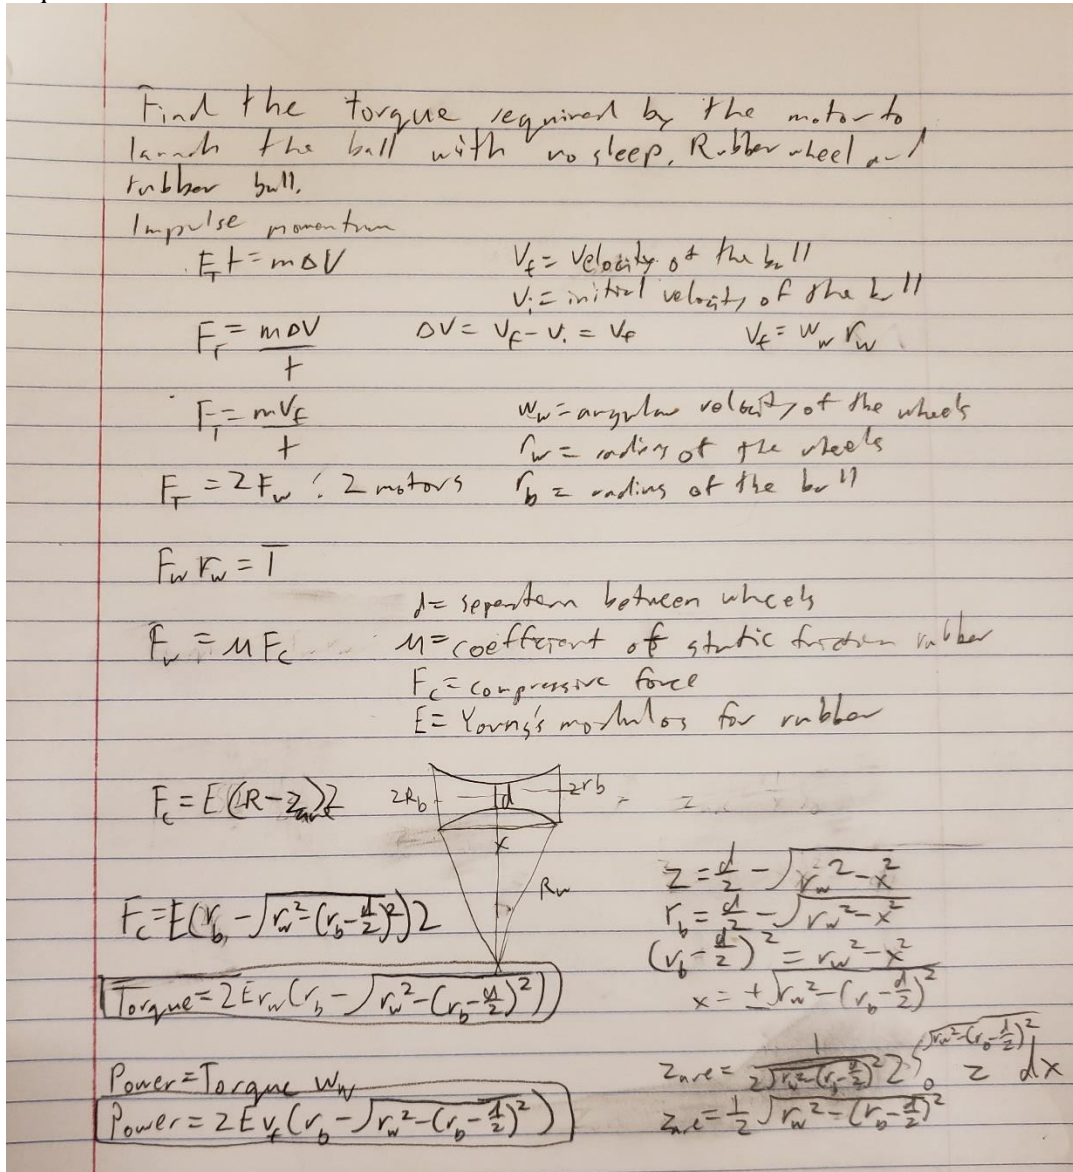 Find the torque required by the motor to
launch the ball with no sleep. Rubber wheel and
rubber ball.
Impulse momentum
F_T t = mΔV
V_f = Velocity of the ball
V_i = initial velocity of the ball
F_T = mΔV / t
ΔV = V_f - V_i = V_f
V_f = w_w r_w
F_T = mV_f / t
w_w = angular velocity of the wheels
r_w = radius of the wheels
F_T = 2F_w ∵ 2 motors
r_b = radius of the ball
F_w r_w = T
d = seperation between wheels
F_w = μ F_c
μ = coefficient of static friction rubber
F_c = compressive force
E = Young's modulus for rubber
F_c = E(R - z_ave)2
2R_b
d
2r_b
x
R_w
z = d/2 - √(r_w² - x²)
F_c = E(r_b - √(r_w² - (r_b - d/2)²))2
r_b = d/2 - √(r_w² - x²)
(r_b - d/2)² = r_w² - x²
x = ±√(r_w² - (r_b - d/2)²)
Torque = 2Er_w(r_b - √(r_w² - (r_b - d/2)²))
Power = Torque w_w
z_ave = 1 / (2√(r_w² - (r_b - d/2)²)) 2 ∫_0^√(r_w² - (r_b - d/2)²) z dx
Power = 2Ev_f(r_b - √(r_w² - (r_b - d/2)²))
z_ave = 1/2 √(r_w² - (r_b - d/2)²)